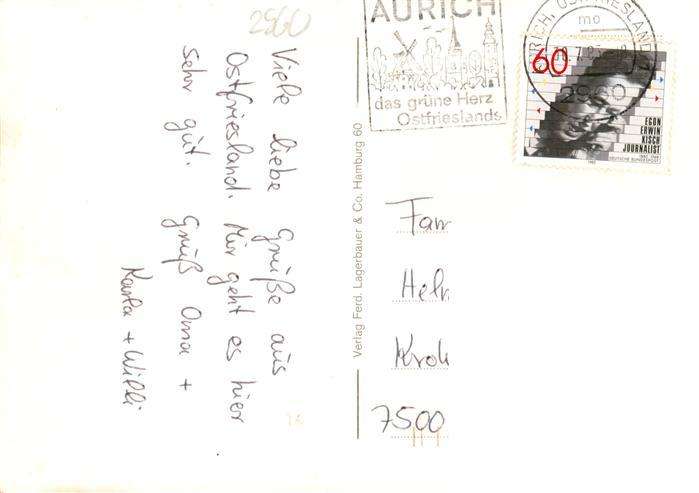 2960
Viele liebe Grüße aus
Ostfriesland. Mir geht es hier
sehr gut. Gruß Oma +
Karla + Willi
Verlag Ferd. Lagerbauer & Co. Hamburg 60
AURICH
das grüne Herz
Ostfrieslands
AURICH, OSTFRIESLAND
mo
2960
60
EGON
ERWIN
KISCH
JOURNALIST
DEUTSCHE BUNDESPOST
Fam
Heln
7500